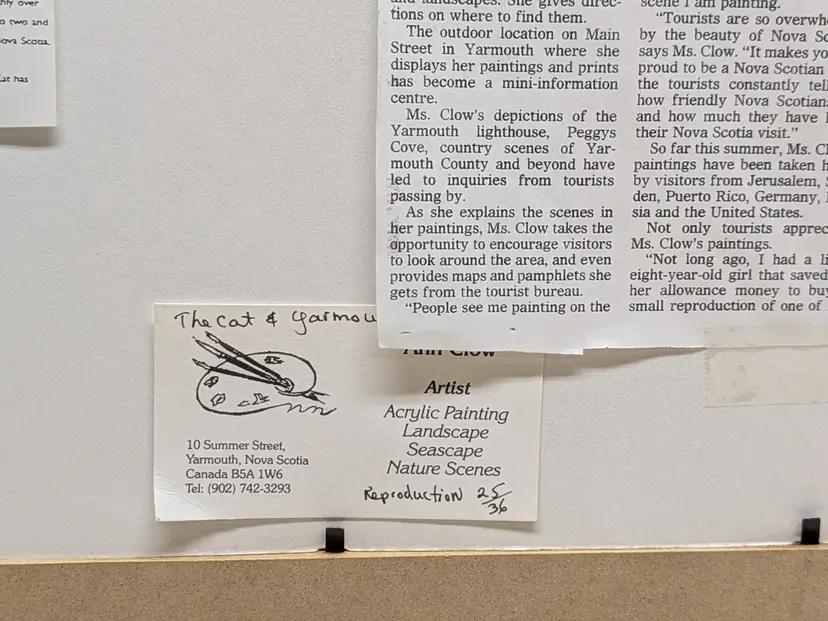 over
two and
Nova Scotia
Cat has
and landscapes. She gives direc-
tions on where to find them.
The outdoor location on Main
Street in Yarmouth where she
displays her paintings and prints
has become a mini-information
centre.
Ms. Clow's depictions of the
Yarmouth lighthouse, Peggys
Cove, country scenes of Yar-
mouth County and beyond have
led to inquiries from tourists
passing by.
As she explains the scenes in
her paintings, Ms. Clow takes the
opportunity to encourage visitors
to look around the area, and even
provides maps and pamphlets she
gets from the tourist bureau.
"People see me painting on the
scene I am painting.
"Tourists are so overwh
by the beauty of Nova Sc
says Ms. Clow. "It makes yo
proud to be a Nova Scotian
the tourists constantly tell
how friendly Nova Scotian
and how much they have
their Nova Scotia visit."
So far this summer, Ms. Cl
paintings have been taken h
by visitors from Jerusalem, S
den, Puerto Rico, Germany,
sia and the United States.
Not only tourists apprec
Ms. Clow's paintings.
"Not long ago, I had a li
eight-year-old girl that saved
her allowance money to buy
small reproduction of one of
The Cat & Yarmou
Ann Clow
Artist
Acrylic Painting
Landscape
Seascape
Nature Scenes
10 Summer Street,
Yarmouth, Nova Scotia
Canada B5A 1W6
Tel: (902) 742-3293
Reproduction 25/36